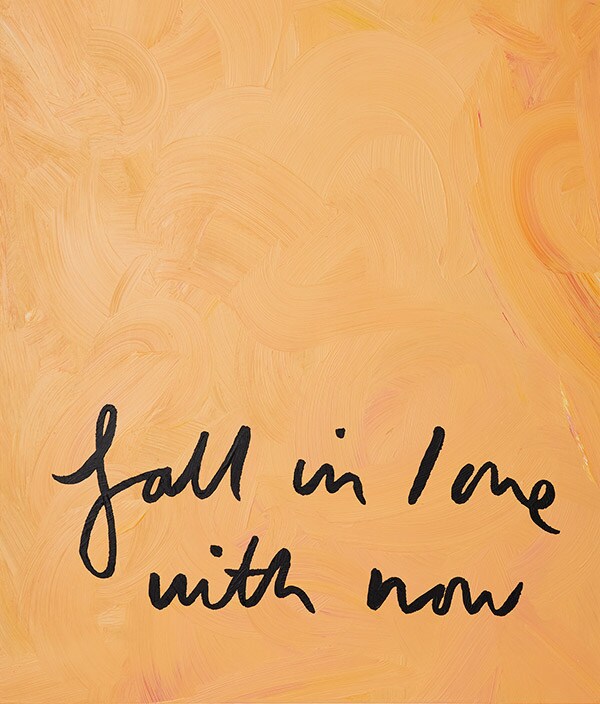 fall in love
with now